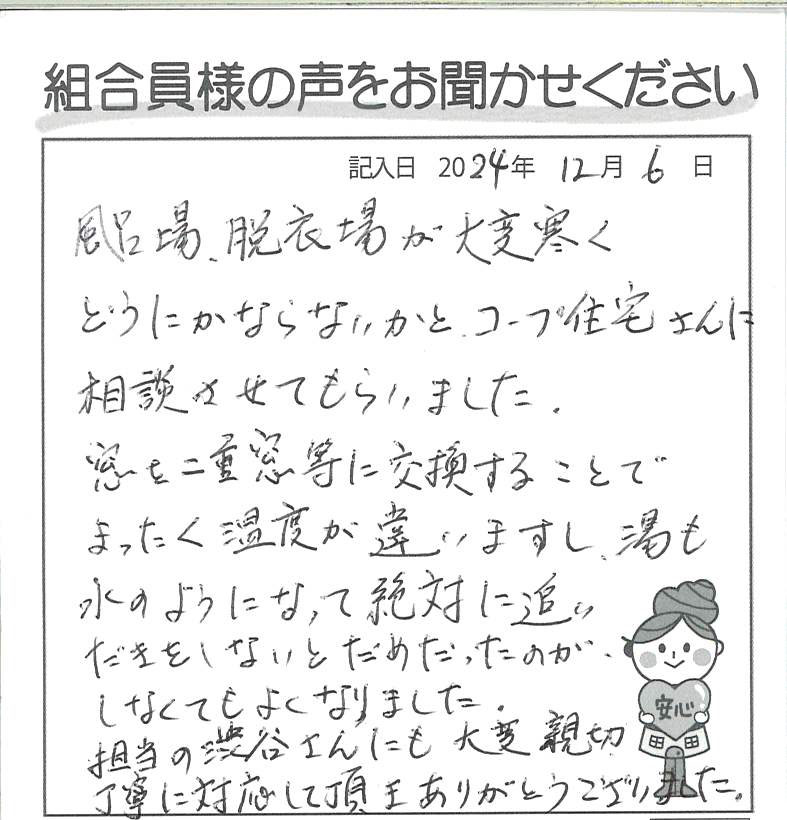 組合員様の声をお聞かせください
記入日 2024年 12月 6 日
風呂場、脱衣場が大変寒く
どうにかならないかと、コープ住宅さんに
相談させてもらいました。
窓を二重窓等に交換することで
まったく温度が違いますし、湯も
水のようになって絶対に追い
だきをしないとだめだったのが、
しなくてもよくなりました。
担当の渋谷さんにも大変親切
丁寧に対応して頂きありがとうございました。
安心